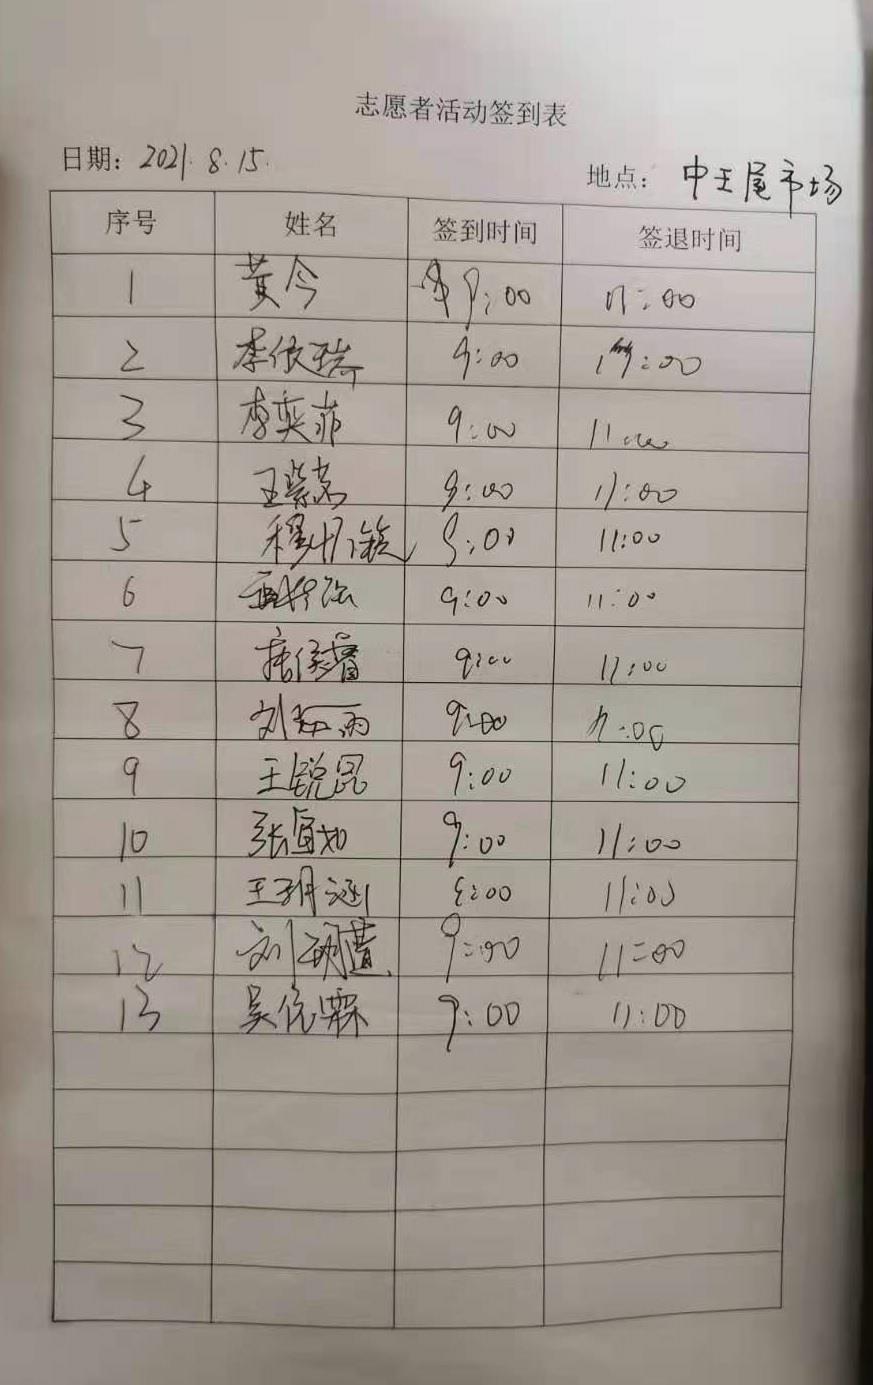 志愿者活动签到表
日期: 2021.8.15.
地点: 中王尾市场
序号 姓名 签到时间 签退时间
1 黄今 9:00 11:00
2 李依瑞 9:00 11:00
3 李奕菲 9:00 11:00
4 王紫茗 9:00 11:00
5 9:00 11:00
6 9:00 11:00
7 唐俊睿 9:00 11:00
8 9:00 11:00
9 王锐昆 9:00 11:00
10 9:00 11:00
11 王玥涵 9:00 11:00
12 9:00 11:00
13 吴优霖 9:00 11:00